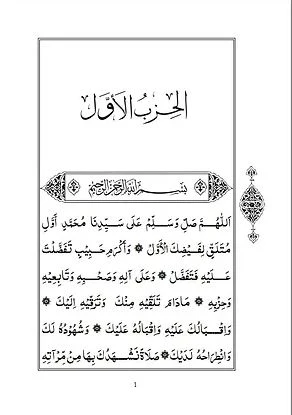 الحِزبُ الأوَّل
بِسْمِ اللَّهِ الرَّحْمَنِ الرَّحِيمِ
اَللّٰهُمَّ صَلِّ وَسَلِّمْ عَلَى سَيِّدِنَا مُحَمَّدٍ أَوَّلِ
مُتَلَقٍّ لِفَيْضِكَ الْأَوَّلِ ۞ وَأَكْرَمِ حَبِيبٍ تَفَضَّلْتَ
عَلَيْهِ فَتَفَضَّلَ ۞ وَعَلَى آلِهِ وَصَحْبِهِ وَتَابِعِيهِ
وَحِزْبِهِ ۞ مَادَامَ تَلَقِّيهِ مِنْكَ وَتَرَقِّيهِ إِلَيْكَ ۞
وَإِقْبَالُكَ عَلَيْهِ وَإِقْبَالُهُ عَلَيْكَ ۞ وَشُهُودُهُ لَكَ
وَانْطِرَاحُهُ لَدَيْكَ ۞ صَلَاةً نَشْهَدُكَ بِهَا مِنْ مِرْآتِهِ
1